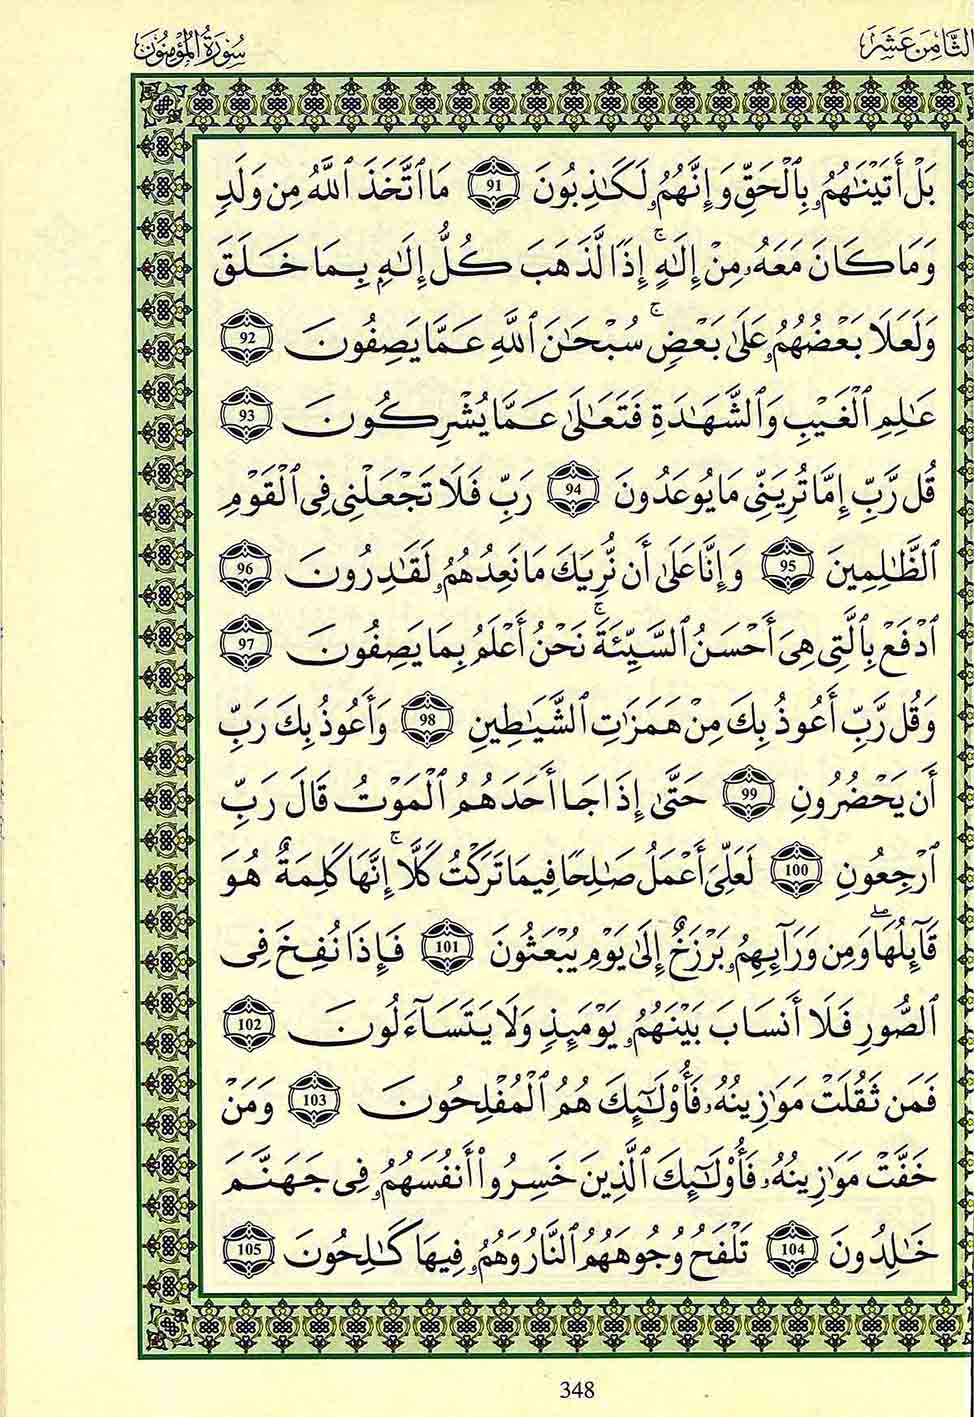 الثَّامِنَ عَشَرَ
سُورَةُ الْمُؤْمِنُونَ
بَلْ أَتَيْنَٰهُمُۥ بِٱلْحَقِّ وَإِنَّهُمُۥ لَكَٰذِبُونَ 91 مَا ٱتَّخَذَ ٱللَّهُ مِن وَلَدٍ
وَمَا كَانَ مَعَهُۥ مِنْ إِلَٰهٍۚ إِذًا لَّذَهَبَ كُلُّ إِلَٰهِۭ بِمَا خَلَقَ
وَلَعَلَا بَعْضُهُمُۥ عَلَىٰ بَعْضٍۚ سُبْحَٰنَ ٱللَّهِ عَمَّا يَصِفُونَ 92
عَٰلِمِ ٱلْغَيْبِ وَٱلشَّهَٰدَةِ فَتَعَٰلَىٰ عَمَّا يُشْرِكُونَ 93
قُل رَّبِّ إِمَّا تُرِيَنِّى مَا يُوعَدُونَ 94 رَبِّ فَلَا تَجْعَلْنِى فِى ٱلْقَوْمِ
ٱلظَّٰلِمِينَ 95 وَإِنَّا عَلَىٰ أَن نُّرِيَكَ مَا نَعِدُهُمُۥ لَقَٰدِرُونَ 96
ٱدْفَعْ بِٱلَّتِى هِىَ أَحْسَنُ ٱلسَّيِّئَةَۚ نَحْنُ أَعْلَمُ بِمَا يَصِفُونَ 97
وَقُل رَّبِّ أَعُوذُ بِكَ مِنْ هَمَزَٰتِ ٱلشَّيَٰطِينِ 98 وَأَعُوذُ بِكَ رَبِّ
أَن يَحْضُرُونِ 99 حَتَّىٰ إِذَا جَا أَحَدَهُمُ ٱلْمَوْتُ قَالَ رَبِّ
ٱرْجِعُونِ 100 لَعَلِّىَ أَعْمَلُ صَٰلِحًا فِيمَا تَرَكْتُ كَلَّاۚ إِنَّهَا كَلِمَةٌ هُوَ
قَآئِلُهَاۖ وَمِن وَرَآئِهِمُۥ بَرْزَخٌ إِلَىٰ يَوْمِ يُبْعَثُونَ 101 فَإِذَا نُفِخَ فِى
ٱلصُّورِ فَلَا أَنسَابَ بَيْنَهُمُۥ يَوْمَئِذٍ وَلَا يَتَسَآءَلُونَ 102
فَمَن ثَقُلَتْ مَوَٰزِينُهُۥ فَأُوْلَٰٓئِكَ هُمُ ٱلْمُفْلِحُونَ 103 وَمَنْ
خَفَّتْ مَوَٰزِينُهُۥ فَأُوْلَٰٓئِكَ ٱلَّذِينَ خَسِرُوٓاْ أَنفُسَهُمُۥ فِى جَهَنَّمَ
خَٰلِدُونَ 104 تَلْفَحُ وُجُوهَهُمُ ٱلنَّارُ وَهُمُۥ فِيهَا كَٰلِحُونَ 105
348